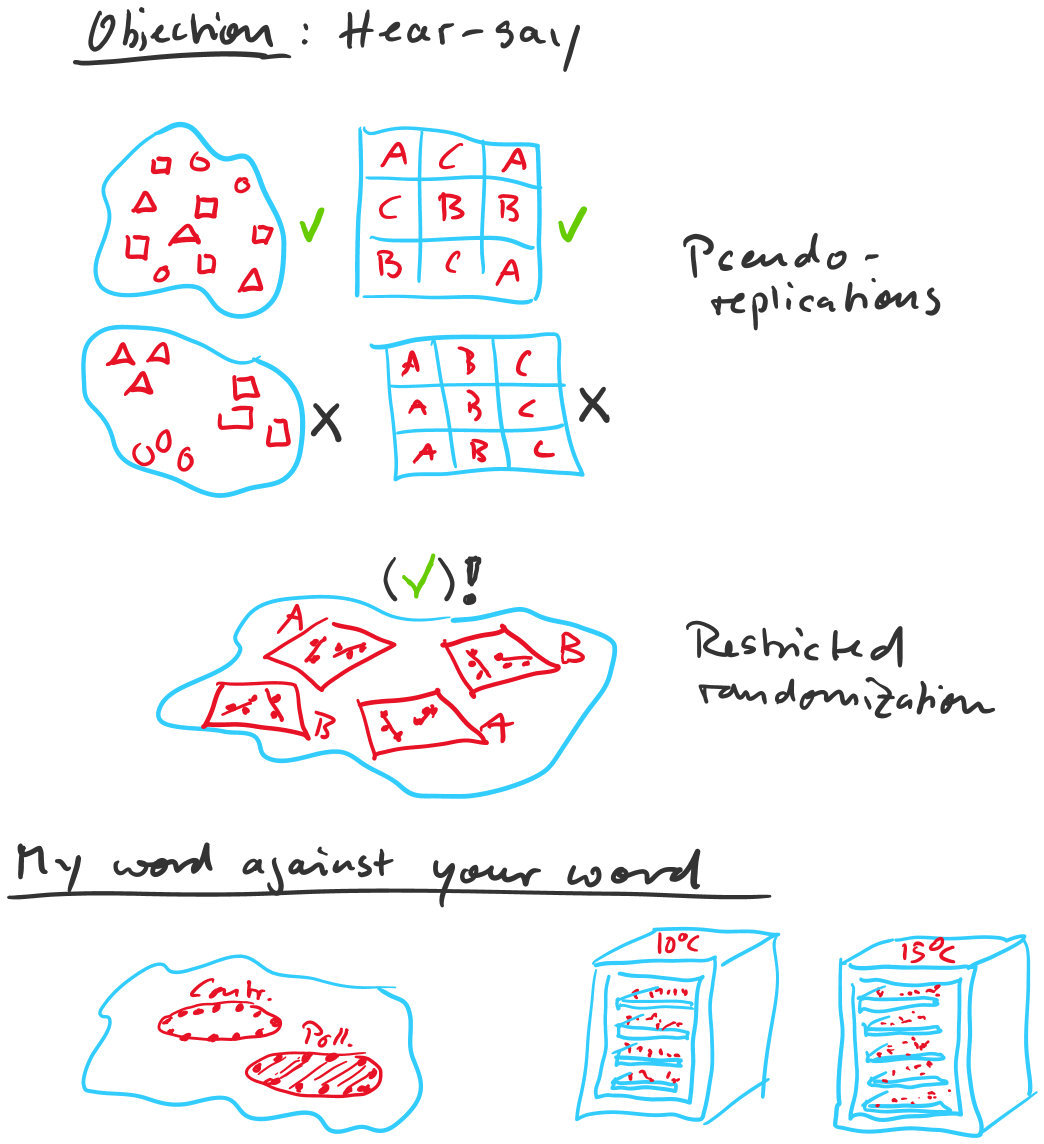 Objection : Hear-say
A C A
C B B
B C A
Pseudo-
replications
A B C
A B C
A B C
(✓)!
A
B
B
A
Restricted
randomization
My word against your word
10°C
15°C
Contr.
Poll.